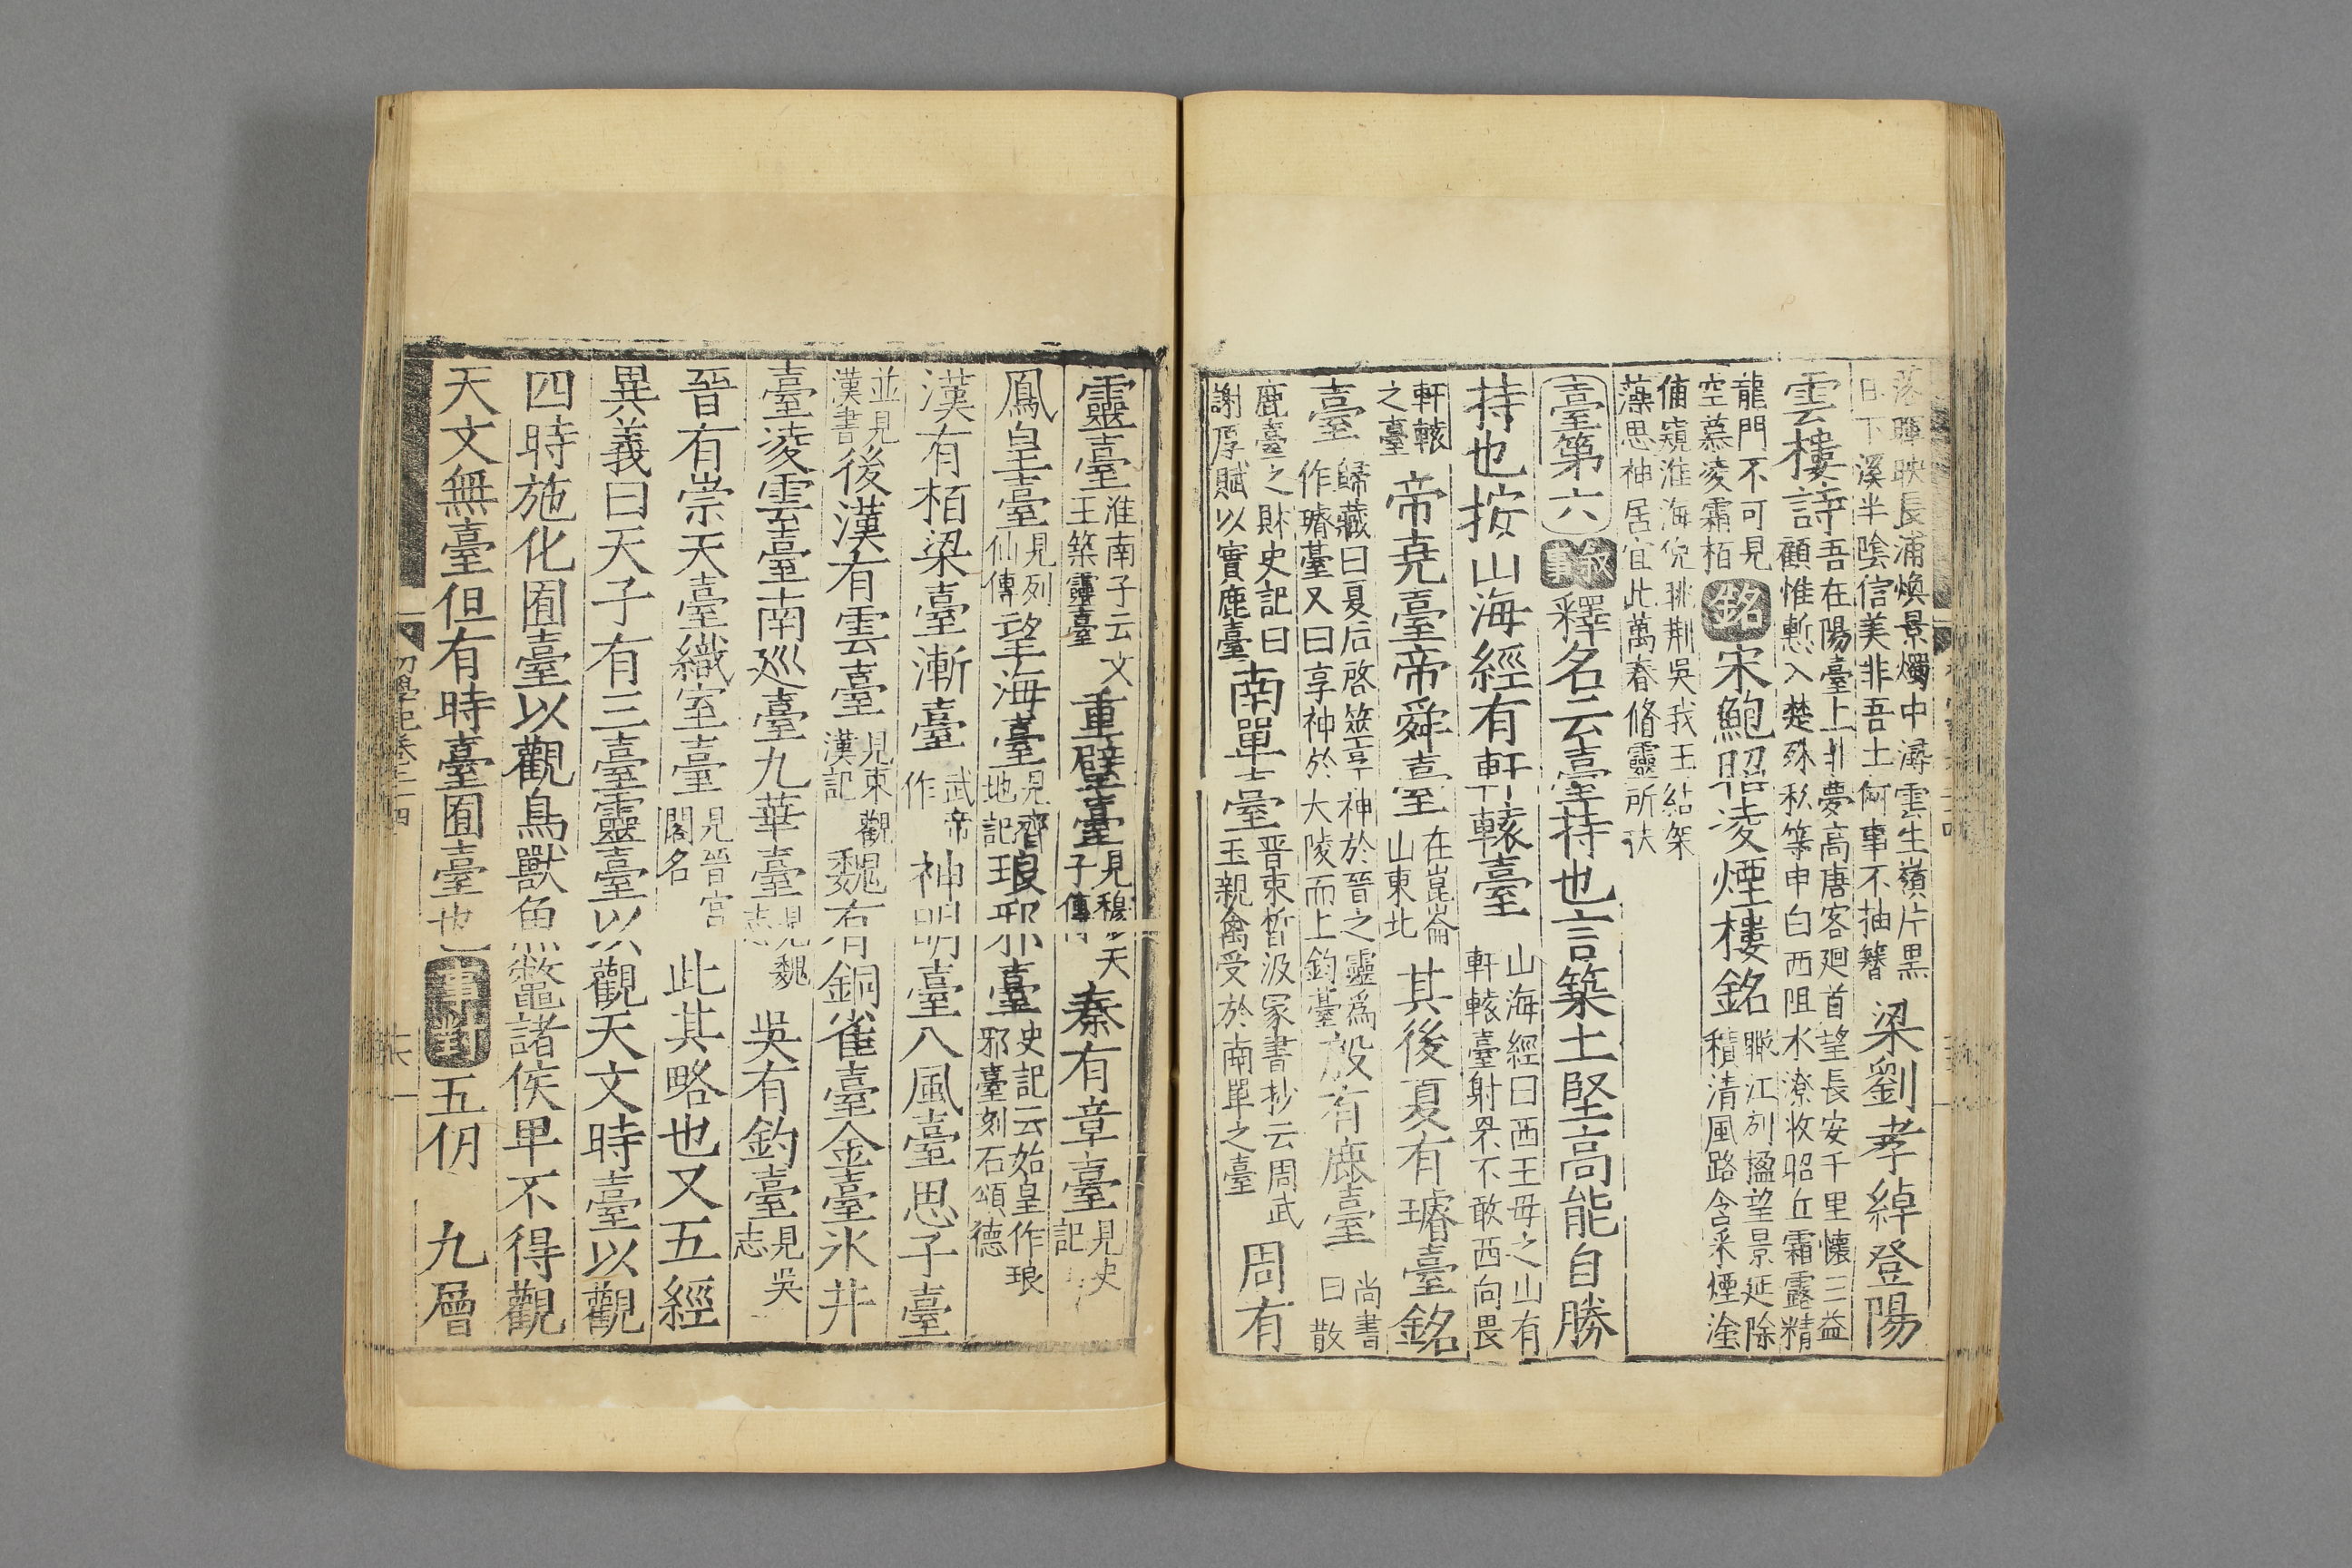 落暉映長浦煥景燭中潯雲生嶺片黑
日下溪半陰信美非吾土何事不抽簪
梁劉孝綽登陽
雲樓詩
吾在陽臺上非夢高唐客廻首望長安千里懷三益
顧惟慙入楚殊私等申白西沮水潦收昭丘霜露精
龍門不可見
空慕凌霜栢
銘宋鮑昭凌煙樓銘
瞰江列楹望景延除
積清風路含采煙塗
俯窺淮海俛眺荆吳我王結架
藻思神居宜此萬春脩靈所扶
臺第六
敘事釋名云臺持也言築土堅高能自勝
持也按山海經有軒轅臺
山海經曰西王母之山有
軒轅臺射者不敢西向畏
軒轅
之臺
帝堯臺帝舜臺
在崑崙
山東北
其後夏有璿臺銘
臺
歸藏曰夏后啓筮享神於晉之靈爲
作璿臺又曰享神於大陵而上鈞臺
殷有鹿臺
尚書
曰散
鹿臺之財史記曰
謝厚賦以實鹿臺
南單臺
晋束晳汲冢書抄云周武
玉親禽受於南單之臺
周有
靈臺
淮南子云文
王築靈臺
重璧臺
見穆天
子傳
秦有章臺
見史
記
鳳皇臺
見列
仙傳
望海臺
見齊
地記
琅邪臺
史記云始皇作琅
邪臺刻石頌德
漢有栢梁臺漸臺
武帝
作
神明臺八風臺思子臺
並見
漢書
後漢有雲臺
見東觀
漢記
魏有銅雀臺金臺氷井
臺凌雲臺南巡臺九華臺
見魏
志
吳有釣臺
見吳
志
晉有崇天臺織室臺
見晉宮
閣名
此其略也又五經
異義曰天子有三臺靈臺以觀天文時臺以觀
四時施化囿臺以觀鳥獸魚鼈諸侯卑不得觀
天文無臺但有時臺囿臺也事對五仞 九層
初學記卷二十四